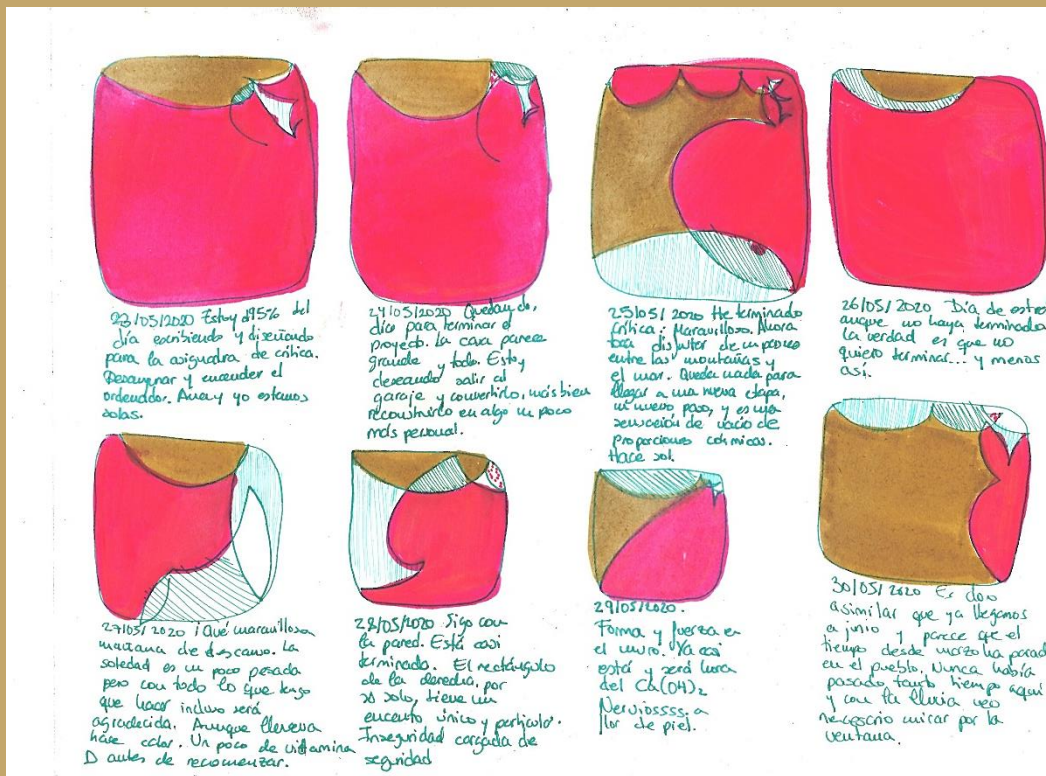 23/05/2020 Estoy el 95% del
día escribiendo y diseñando
para la asignatura de crítica.
Desayunar y encender el
ordenador. Ana y yo estamos
solas.
24/05/2020 Quedan dos
días para terminar el
proyecto. La casa parece
grande y todo. Estoy
deseando salir al
garaje y convertirlo, más bien
reconstruirlo en algo un poco
más personal.
25/05/2020 He terminado
crítica: Maravilloso. Ahora
toca disfrutar de un paseo
entre las montañas y
el mar. Queda nada para
llegar a una nueva etapa,
un nuevo paso, y es una
sensación de vacío de
proporciones cósmicas.
Hace sol.
26/05/2020 Día de estrés
aunque no haya terminado
la verdad es que no
quiero terminar... y menos
así.
27/05/2020 ¡Qué maravillosa
mañana de descanso. La
soledad es un poco pesada
pero con todo lo que tengo
que hacer incluso será
agradecida. Aunque llueva
hace calor. Un poco de vitamina
D antes de recomenzar.
28/05/2020 Sigo con
la pared. Está casi
terminado. El rectángulo
de la derecha, por
sí solo, tiene un
encanto único y particular.
Inseguridad cargada de
seguridad
29/05/2020.
Forma y fuerza en
el muro. Ya casi
está y será hora
del Ca(OH)₂
Nerviossss, a
flor de piel.
30/05/2020 Es duro
asimilar que ya llegamos
a junio y parece que el
tiempo desde marzo ha parado
en el pueblo. Nunca había
pasado tanto tiempo aquí
y con la lluvia veo
necesario mirar por la
ventana.